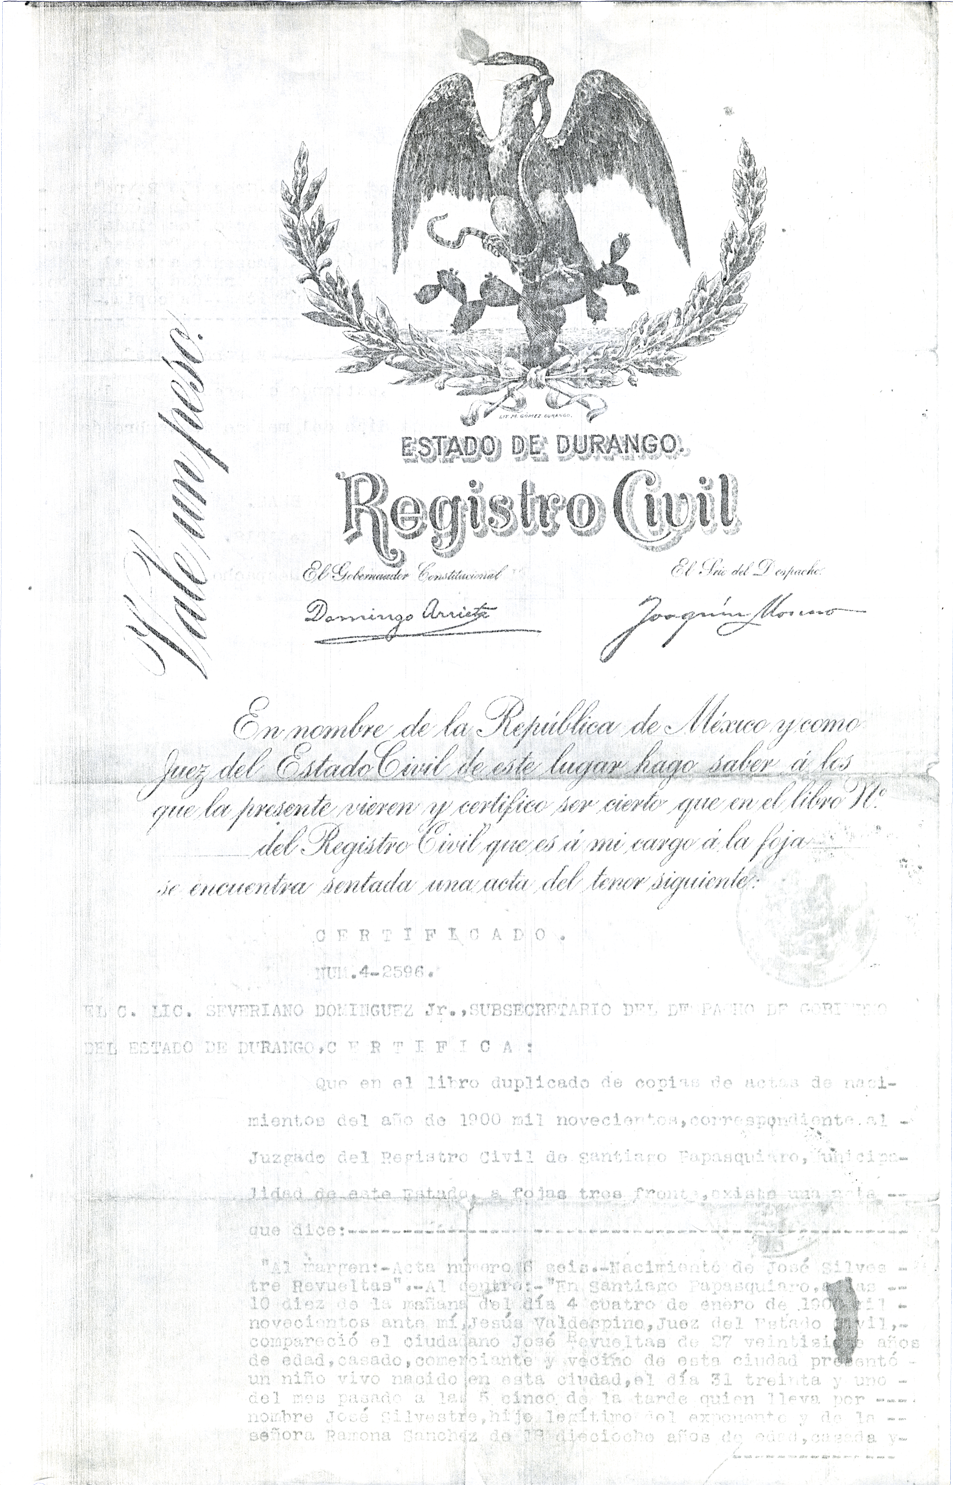 LIT. M. GÓMEZ DURANGO.
ESTADO DE DURANGO.
Registro Civil
Vale un peso.
El Gobernador Constitucional
El Srio del Despacho.
Domingo Arrieta
Joaquín Moreno
En nombre de la República de México y como
Juez del Estado Civil de este lugar hago saber á los
que la presente vieren y certifico ser cierto que en el libro Nº
del Registro Civil que es á mi cargo á la foja
se encuentra sentada una acta del tenor siguiente:
C E R T I F I C A D O .
NUM.4-2596.
EL C. LIC. SEVERIANO DOMINGUEZ Jr.,SUBSECRETARIO DEL DESPACHO DE GOBIERNO
DEL ESTADO DE DURANGO,C E R T I F I C A :
Que en el libro duplicado de copias de actas de naci-
mientos del año de 1900 mil novecientos,correspondiente.al -
Juzgado del Registro Civil de Santiago Papasquiaro, Municipa-
lidad de este Estado, a fojas tres frente,existe una acta --
que dice:----------------------------------------------
"Al margen:-Acta número 6 seis.-Nacimiento de José Silves -
tre Revueltas".-Al centro:-"En Santiago Papasquiaro,a las --
10 diez de la mañana del día 4 cuatro de enero de 1900 mil -
novecientos ante mí,Jesús Valdespino,Juez del Estado Civil,-
compareció el ciudadano José Revueltas de 27 veintisiete años
de edad,casado,comerciante y vecino de esta ciudad presentó -
un niño vivo nacido en esta ciudad,el día 31 treinta y uno -
del mes pasado a las 5 cinco de la tarde quien lleva por ----
nombre José Silvestre,hijo legítimo del exponente y de la --
señora Ramona Sánchez de 18 dieciocho años de edad,casada y-